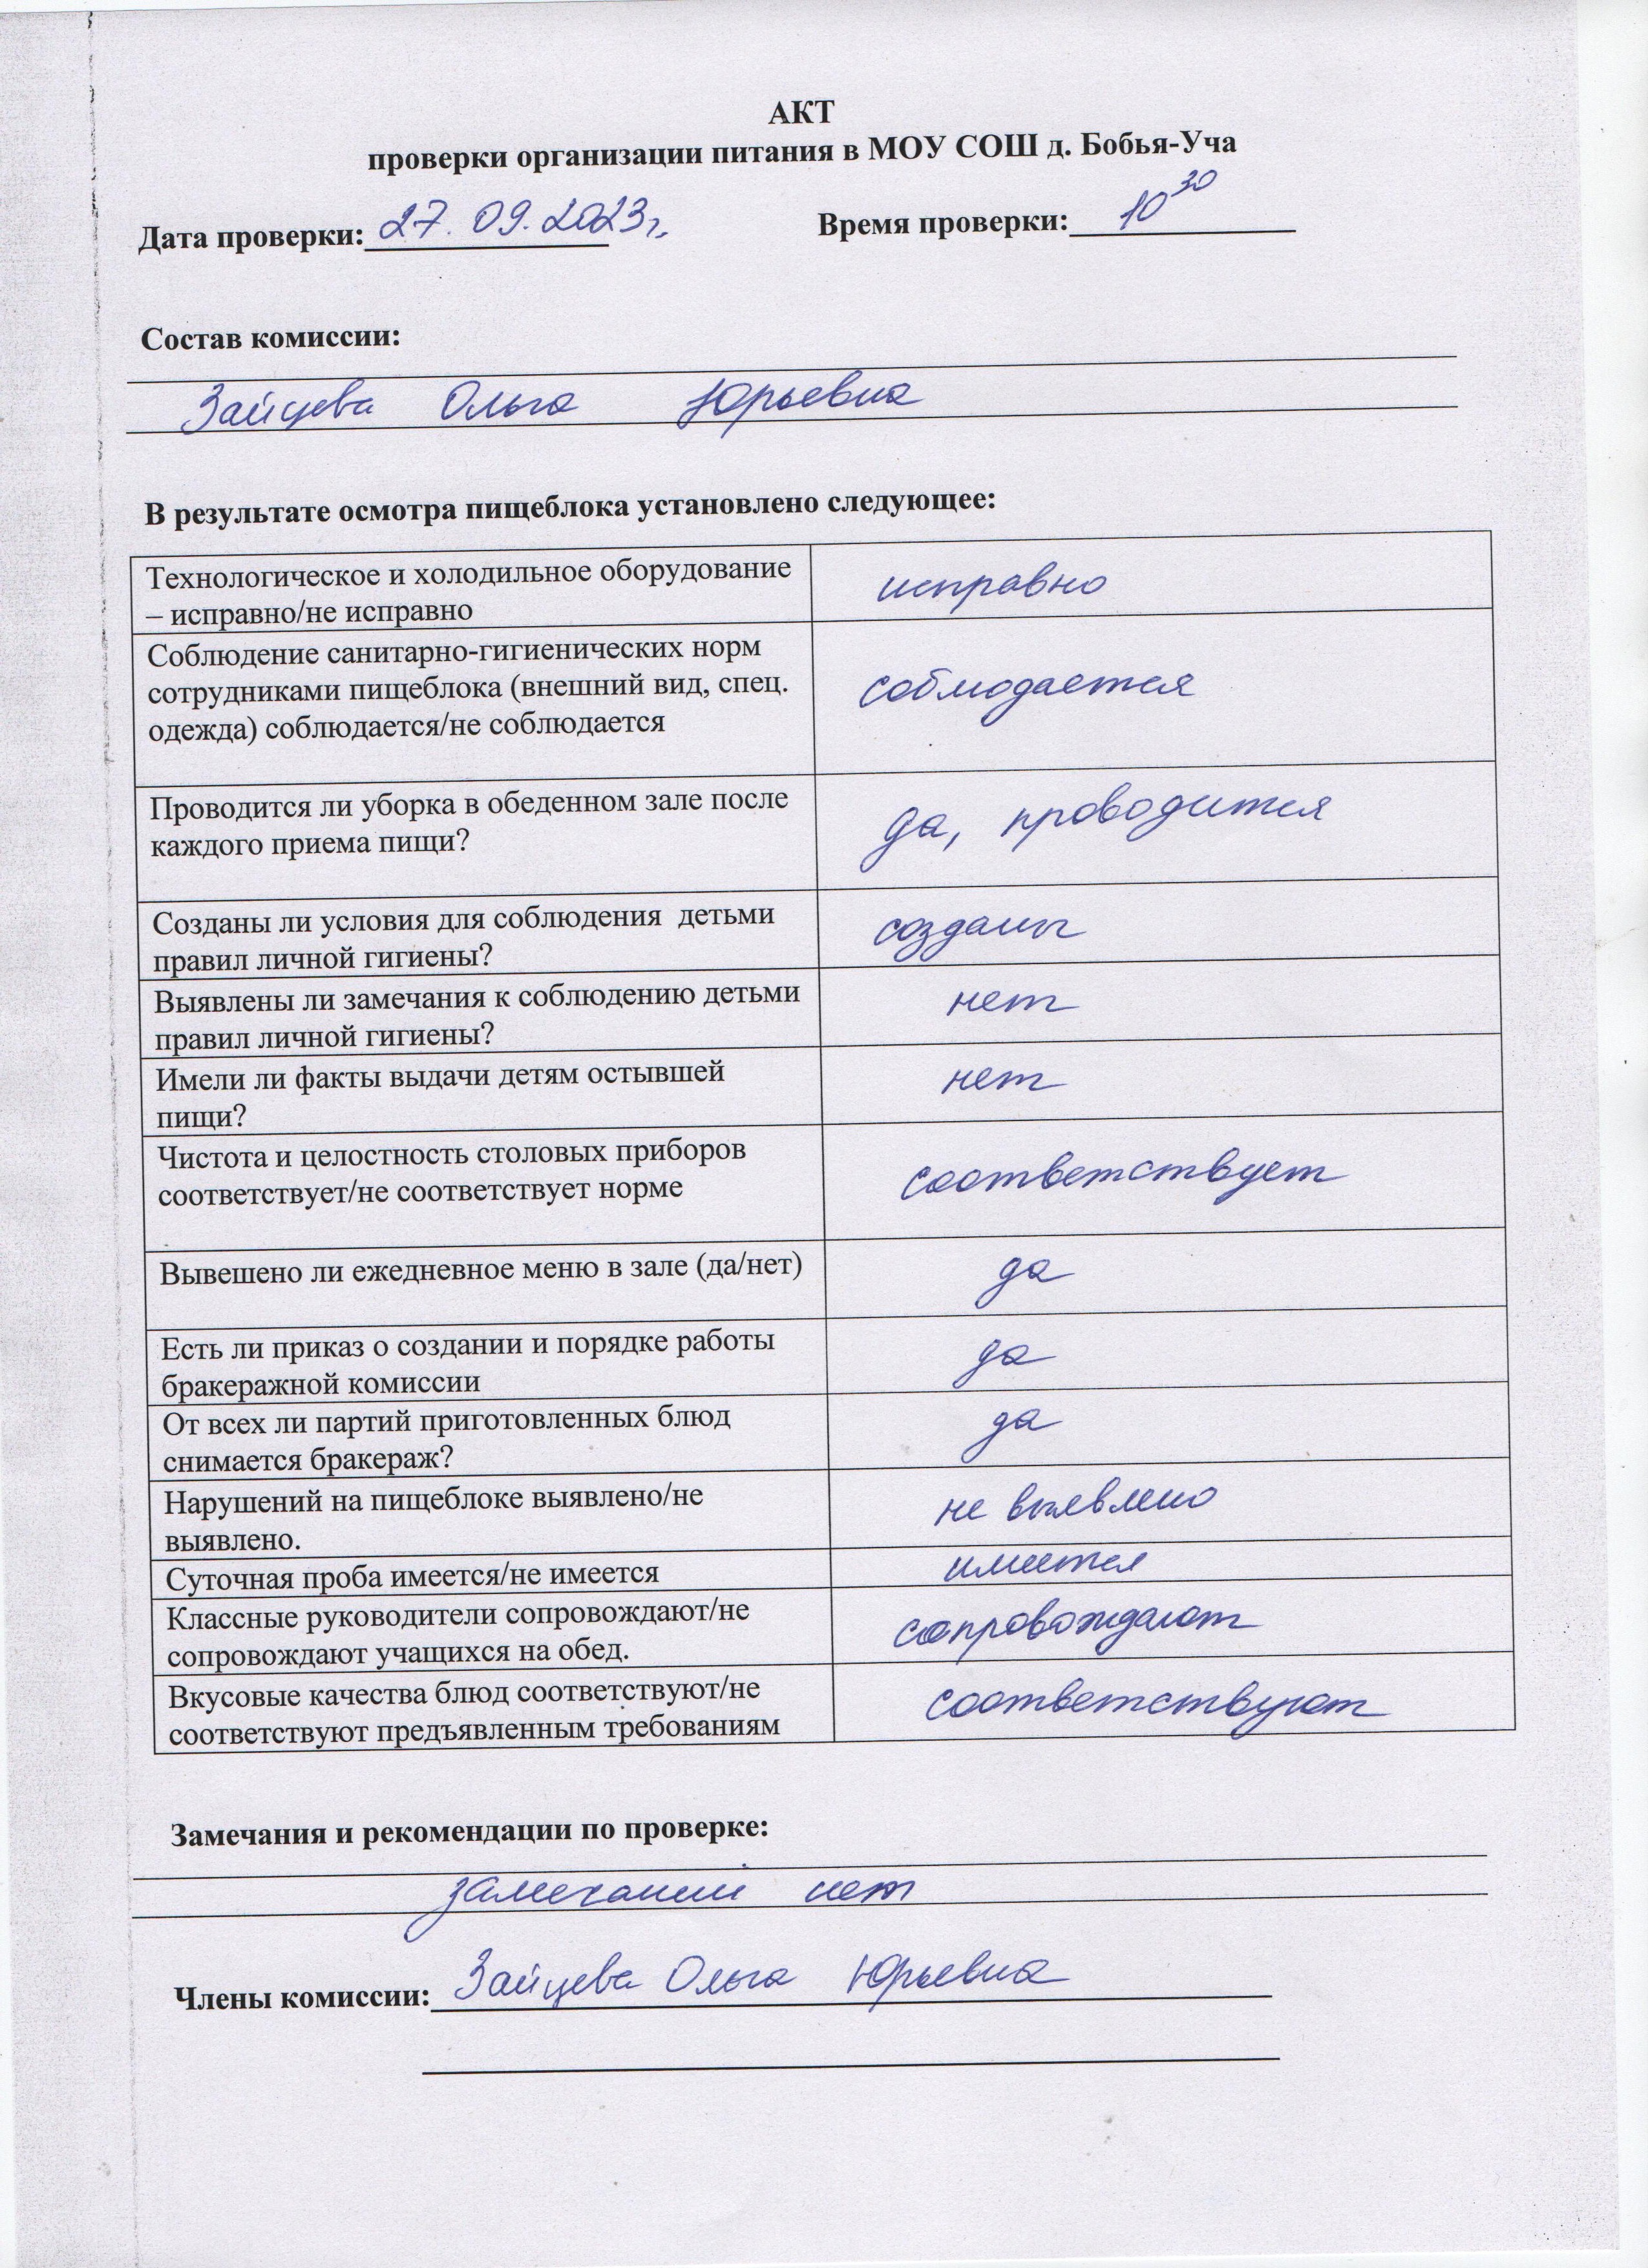 АКТ
проверки организации питания в МОУ СОШ д. Бобья-Уча
Дата проверки: 27.09.2023г. Время проверки: 10 30
Состав комиссии:
Зайцева Ольга Юрьевна
В результате осмотра пищеблока установлено следующее:
Технологическое и холодильное оборудование
– исправно/не исправно
исправно
Соблюдение санитарно-гигиенических норм
сотрудниками пищеблока (внешний вид, спец.
одежда) соблюдается/не соблюдается
соблюдается
Проводится ли уборка в обеденном зале после
каждого приема пищи?
да, проводится
Созданы ли условия для соблюдения детьми
правил личной гигиены?
созданы
Выявлены ли замечания к соблюдению детьми
правил личной гигиены?
нет
Имели ли факты выдачи детям остывшей
пищи?
нет
Чистота и целостность столовых приборов
соответствует/не соответствует норме
соответствует
Вывешено ли ежедневное меню в зале (да/нет)
да
Есть ли приказ о создании и порядке работы
бракеражной комиссии
да
От всех ли партий приготовленных блюд
снимается бракераж?
да
Нарушений на пищеблоке выявлено/не
выявлено.
не выявлено
Суточная проба имеется/не имеется
имеется
Классные руководители сопровождают/не
сопровождают учащихся на обед.
сопровождают
Вкусовые качества блюд соответствуют/не
соответствуют предъявленным требованиям
соответствуют
Замечания и рекомендации по проверке:
замечаний нет
Члены комиссии: Зайцева Ольга Юрьевна